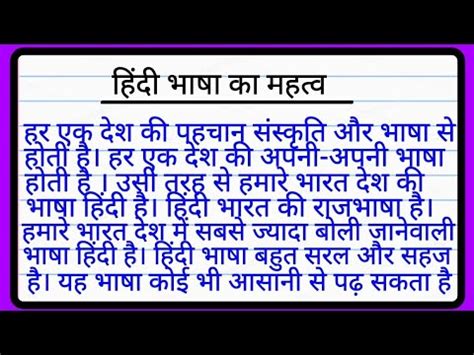 हिंदी भाषा का महत्व
हर एक देश की पहचान संस्कृति और भाषा से
होती है। हर एक देश की अपनी-अपनी भाषा
होती है । उसी तरह से हमारे भारत देश की
भाषा हिंदी है। हिंदी भारत की राजभाषा है।
हमारे भारत देश में सबसे ज्यादा बोली जानेवाली
भाषा हिंदी है। हिंदी भाषा बहुत सरल और सहज
है। यह भाषा कोई भी आसानी से पढ़ सकता है